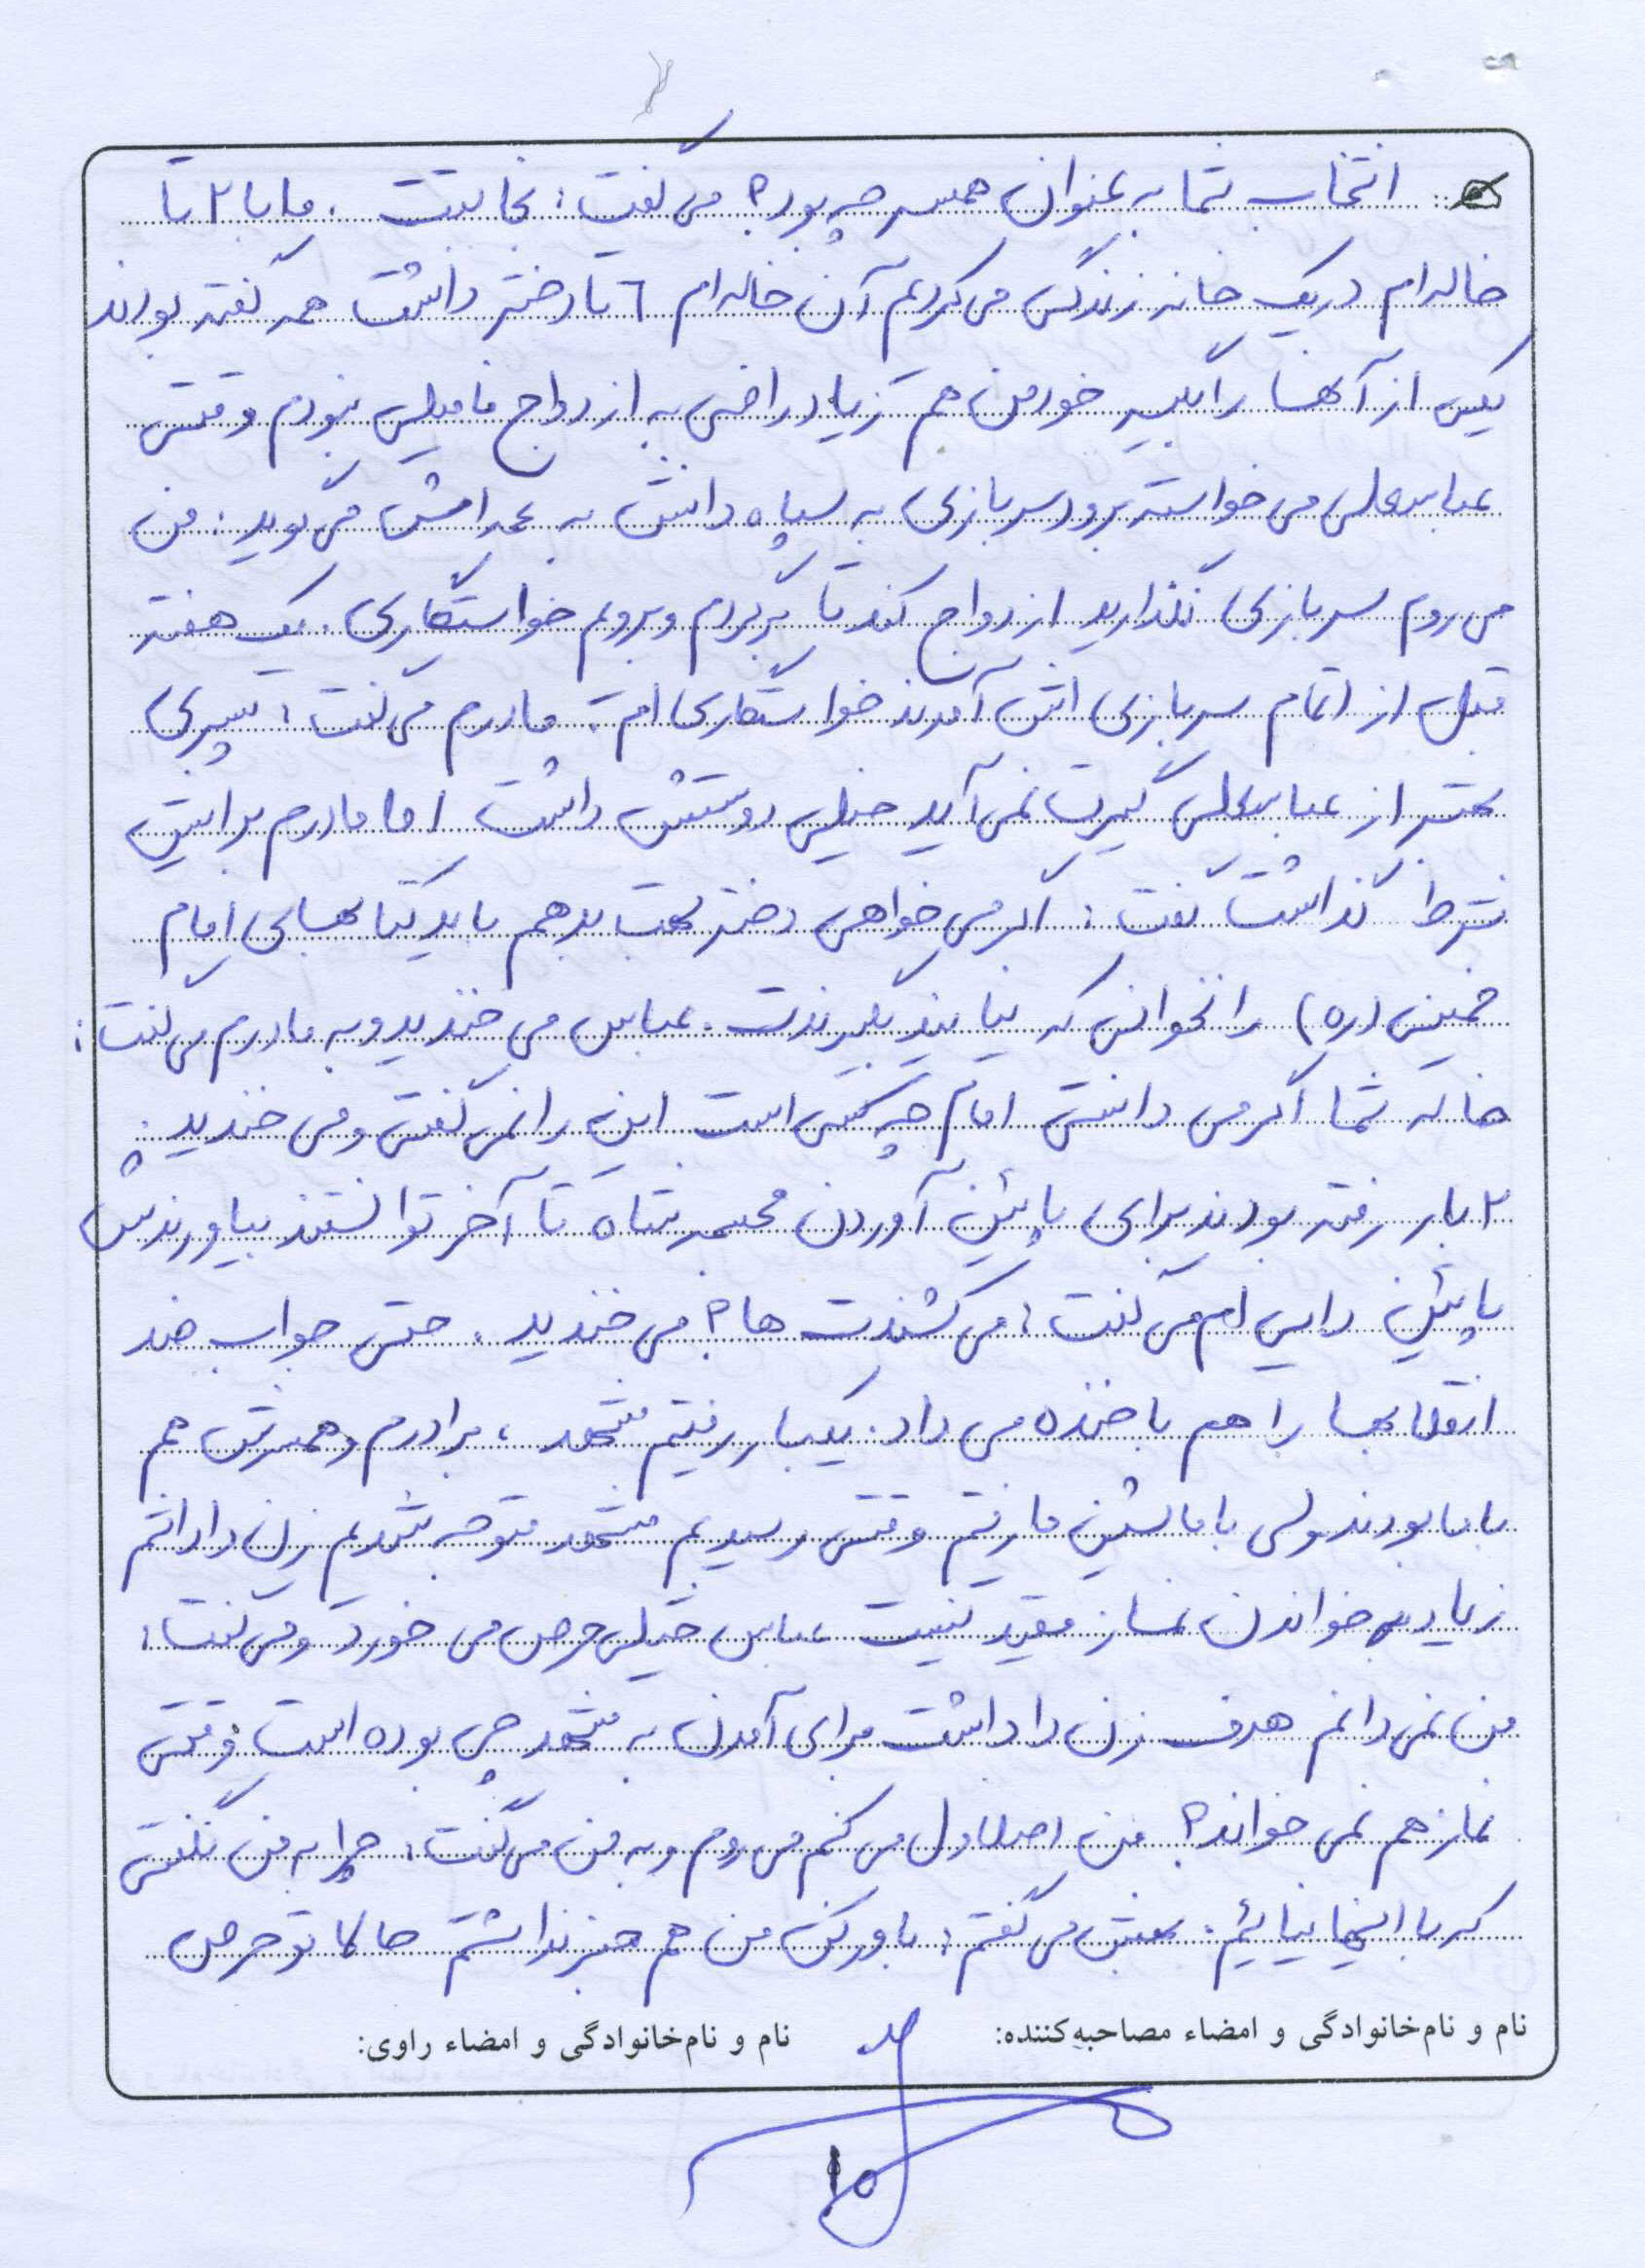 انتخاب شما به عنوان همسر چه بود؟ می گفت: نجابتت. ما با ۲ تا
خاله ام در یک خانه زندگی می کردیم آن خاله ام ۶ تا دختر داشت همه گفته بودند
یکی از آنها را بگیر خود من هم زیاد راضی به ازدواج فامیلی نبودم وقتی
عباسعلی می خواسته برود سربازی به سپاه دانش به عمه امش می گوید: من
می روم سربازی نگذارید ازدواج کند تا برگردم و برویم خواستگاری. یک هفته
قبل از اتمام سربازی اش آمدند خواستگاری ام. مادرم می گفت: پسری
بهتر از عباسعلی گیرت نمی آید خیلی دوستش داشت اما مادرم برایش
شرط گذاشت گفت: اگر می خواهی دختر بهت بدهم باید کتابهای امام
خمینی (ره) را نخوانی که نیایند بگیرندت. عباس می خندید و به مادرم می گفت:
خاله شما اگر می دانستی امام چه کسی است این را نمی گفتی و می خندید.
۲ بار رفته بودند برای پائین آوردن مجسمه شاه تا آخر توانستند بیاورندش
پائین دایی ام می گفت: می کشندت ها؟ می خندید. حتی جواب ضد
انقلابها را هم با خنده می داد. یکبار رفتیم مشهد، برادرم و همسرش هم
با ما بودند ولی با ماشین ما رفتیم وقتی رسیدیم مشهد متوجه شدیم زن داداشم
زیاد به خواندن نماز مقید نیست عباس خیلی حرص می خورد و می گفت:
من نمی دانم هدف زن داداشت برای آمدن به مشهد چی بوده است وقتی
نماز هم نمی خواند؟ من اصلا ول می کنم می روم و به من می گفت: چرا به من نگفتی
که با اینها نیائیم. بهش می گفتم: باور کن من هم خبر نداشتم حالا تو حرص
نام و نام‌خانوادگی و امضاء مصاحبه‌کننده: نام و نام‌خانوادگی و امضاء راوی:
۱۵